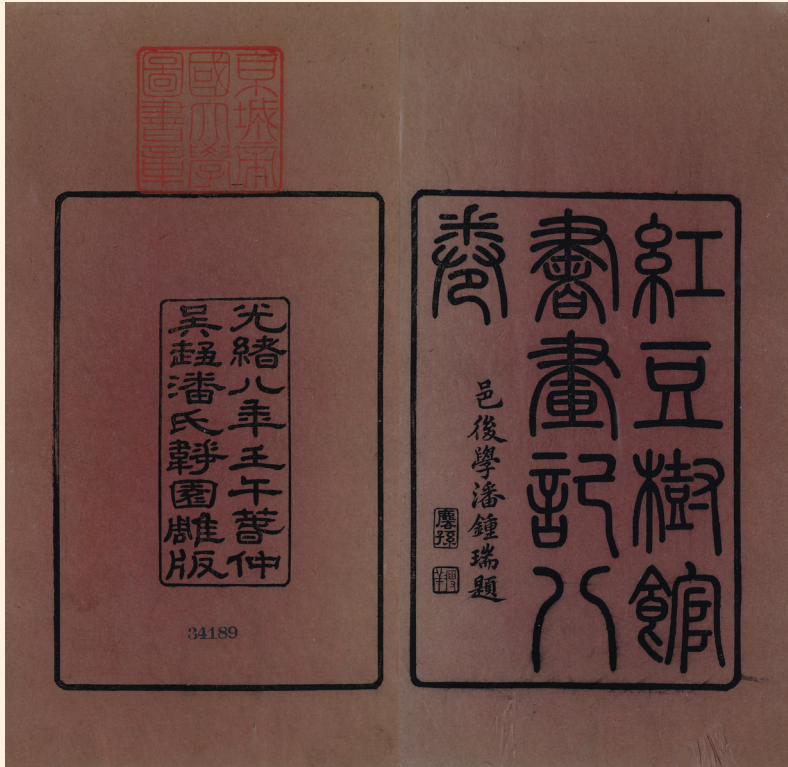 紅豆樹館
書畫記八
卷
邑後學潘鍾瑞題
瘦羊
京城帝
國大學
圖書章
光緒八年壬午萅仲
吳趨潘氏韡園雕版
34189